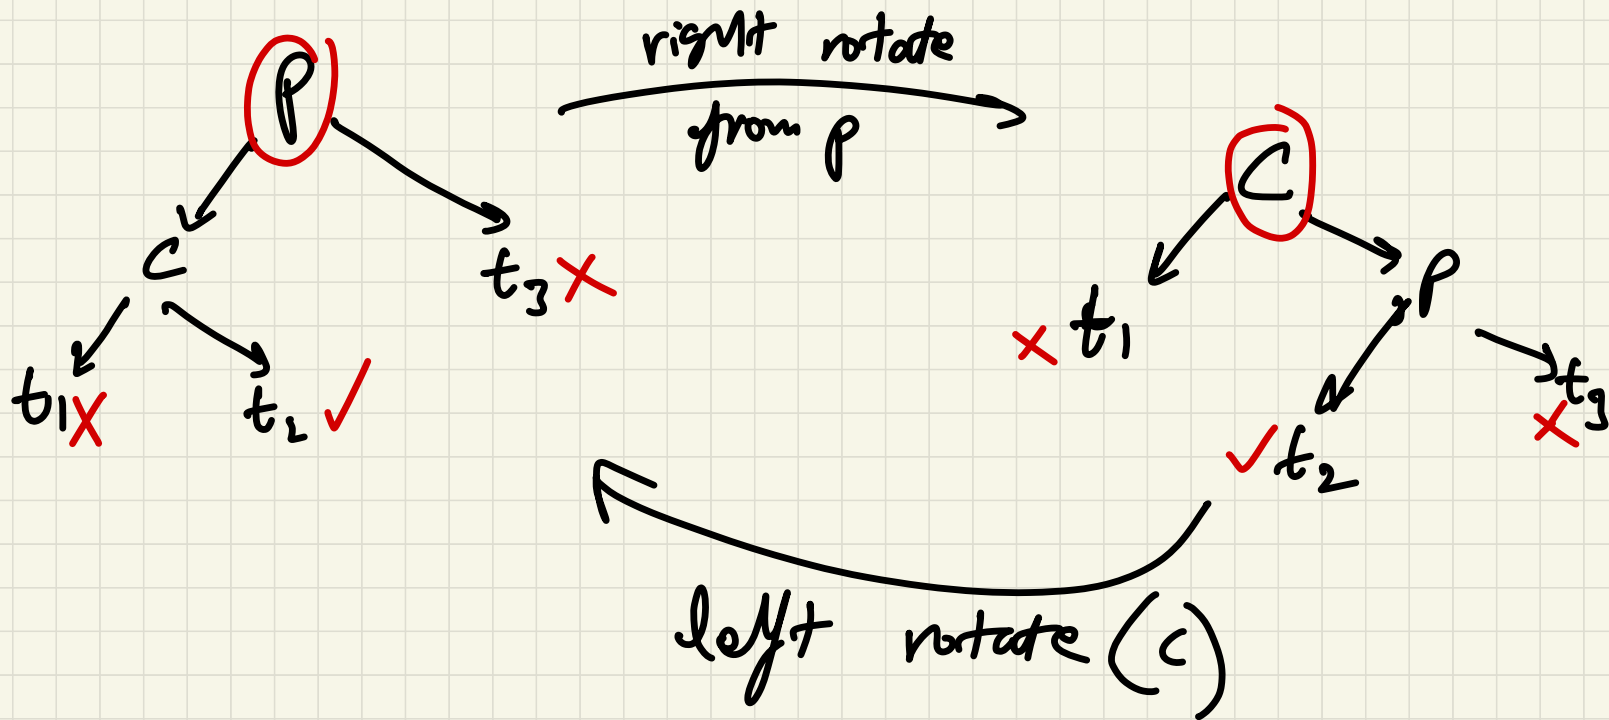 right rotate
from p
P
C
C
t3
P
t1
t2
t1
t3
t2
left rotate (c)